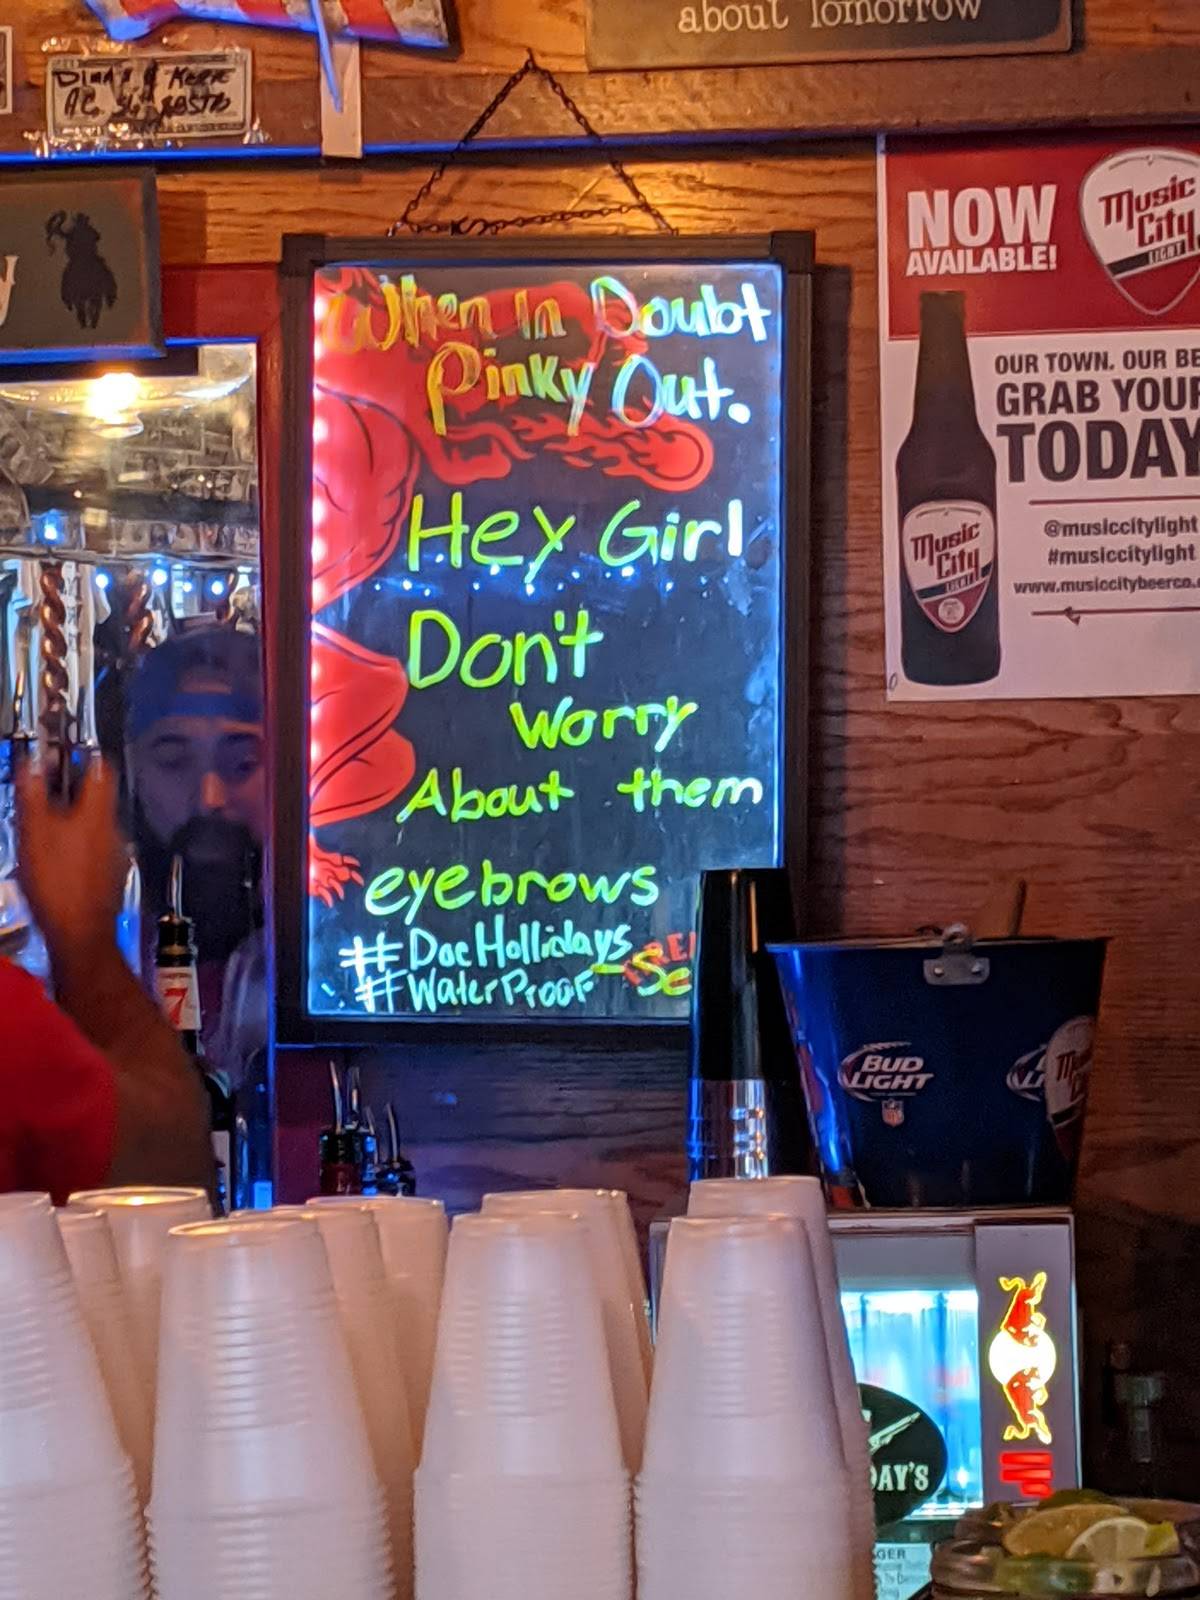 about Tomorrow
When In Doubt
Pinky Out.
Hey Girl
Don't
Worry
About them
eyebrows
#DocHollidays
#WaterProof
Se
NOW
AVAILABLE!
Music
City
LIGHT
OUR TOWN. OUR BE
GRAB YOUR
TODAY
@musiccitylight
#musiccitylight
www.musiccitybeerco.
Music
City
LIGHT
7
BUD
LIGHT
DAY'S
GER